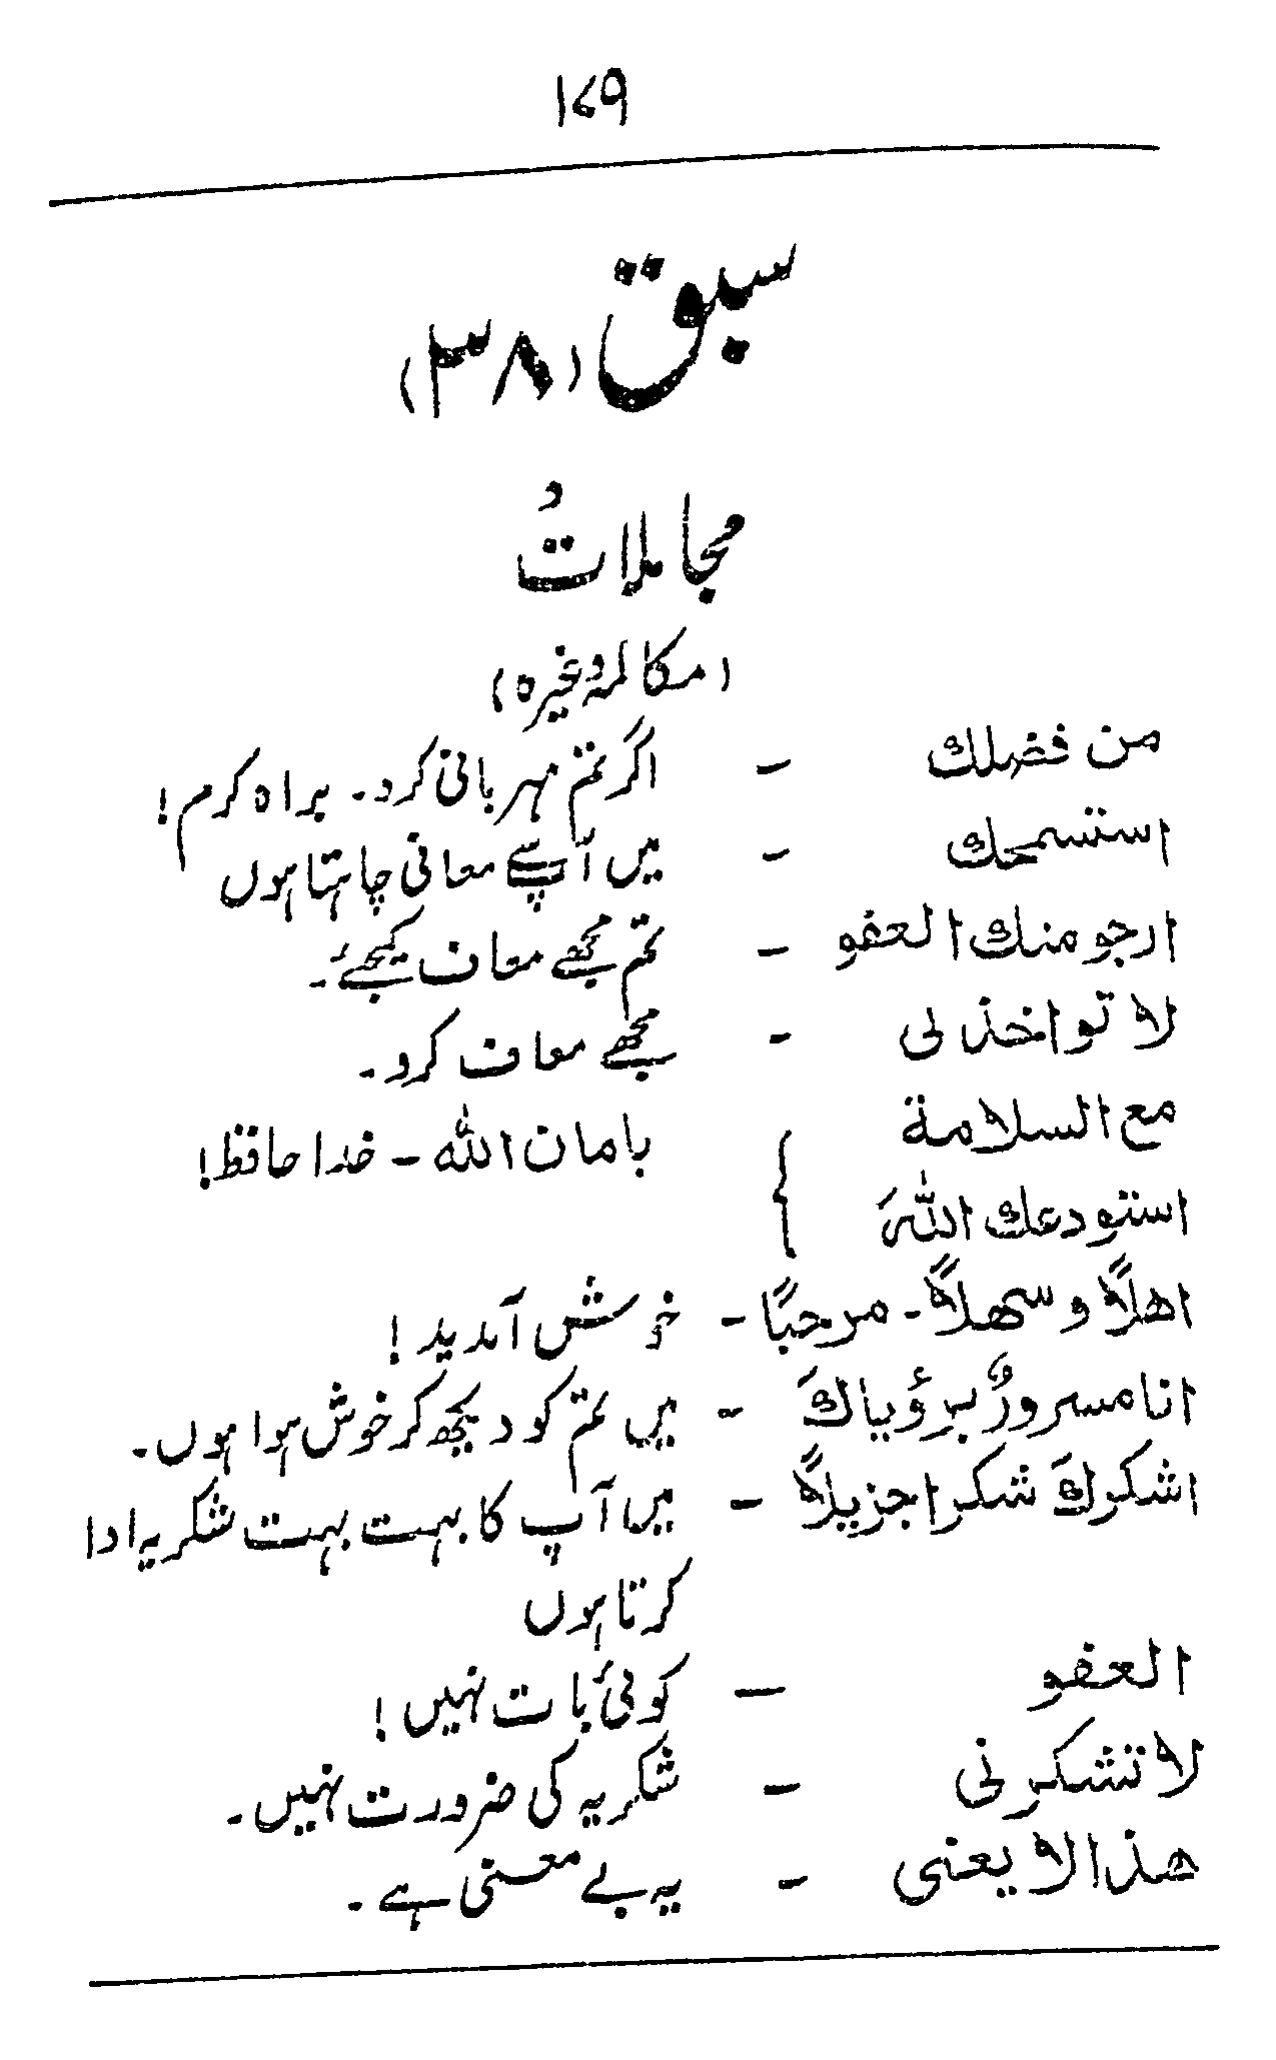 ۱۷۹
سبق (۳۸)
مجاملاتُ
(مکالمہ وغیرہ)
من فضلك - اگر تم مہربانی کرد۔ براہ کرم!
استسمحك - میں آپ سے معافی چاہتا ہوں
ارجو منك العفو - تم مجھے معاف کیجئے۔
لا تواخذ لی - مجھے معاف کرو۔
مع السلامة } بامان اللہ - خدا حافظ!
استودعك اللهَ
اهلاً و سهلاً - مرحبًا - خوش آمدید!
انا مسرورٌ برؤیاكَ - میں تم کو دیکھ کر خوش ہوا ہوں۔
اشکركَ شکرا جزیلاً - میں آپ کا بہت بہت شکریہ ادا
کرتا ہوں
العفو - کوئی بات نہیں!
لا تشکرنی - شکریہ کی ضرورت نہیں۔
هذا لا یعنی - یہ بے معنی ہے۔